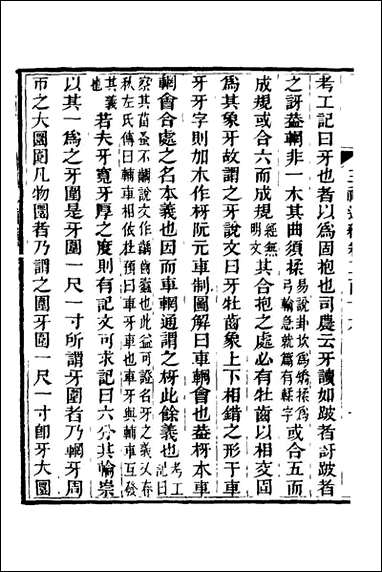 考工記曰牙也者以爲固抱也司農云牙讀如跛者訝跛者
之訝蓋輞非一木其曲須揉易說卦坎爲矯輮爲弓輪急就篇有輮字或合五而
成規或合六而成規經無明文其合抱之處必有牡齒以相交固
爲其象牙故謂之牙說文曰牙牡齒象上下相錯之形于車
牙牙字則加木作枒阮元車制圖解曰車輞會也蓋枒本車
輞會合處之名本義也因而車輞通謂之枒此餘義也考工記曰
察其菑蚤不齵說文作齵齒也此益可證名牙之義又春
秋左氏傳曰輔車相依杜預曰車牙車也車牙與輔車互發
其義也若夫牙寬牙厚之度則有記文可求記曰六分其輪崇
以其一爲之牙圍是牙圍一尺一寸所謂牙圍者乃輞牙周
帀之大圜圍凡物圜者乃謂之圍牙圍一尺一寸卽牙大圜